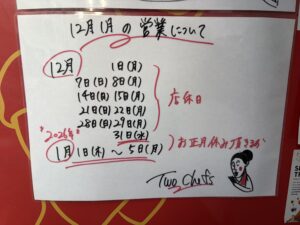 12月1月の営業について
12月 1日(月)
7日(日) 8日(月)
14日(日) 15日(月)
21日(日) 22日(月)
28日(日) 29日(月)
店休日
31日(水)
"2026年"
1月 1日(木) ～ 5日(月)
お正月休み頂きます
Two Chefs